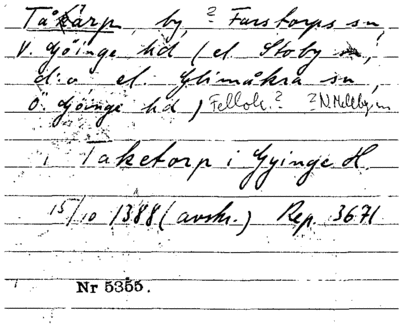 Tåkarp, by, ? Farstorps sn,
V. Göinge hd (el. Stoby sn,
d:o el. Glimåkra sn,
Ö. Göinge hd) Fellok.? ?N Mellby sn
i Taketorp i Gyinge H.
15/10 1388 (avskr.) Rep 3671
Nr 5355.